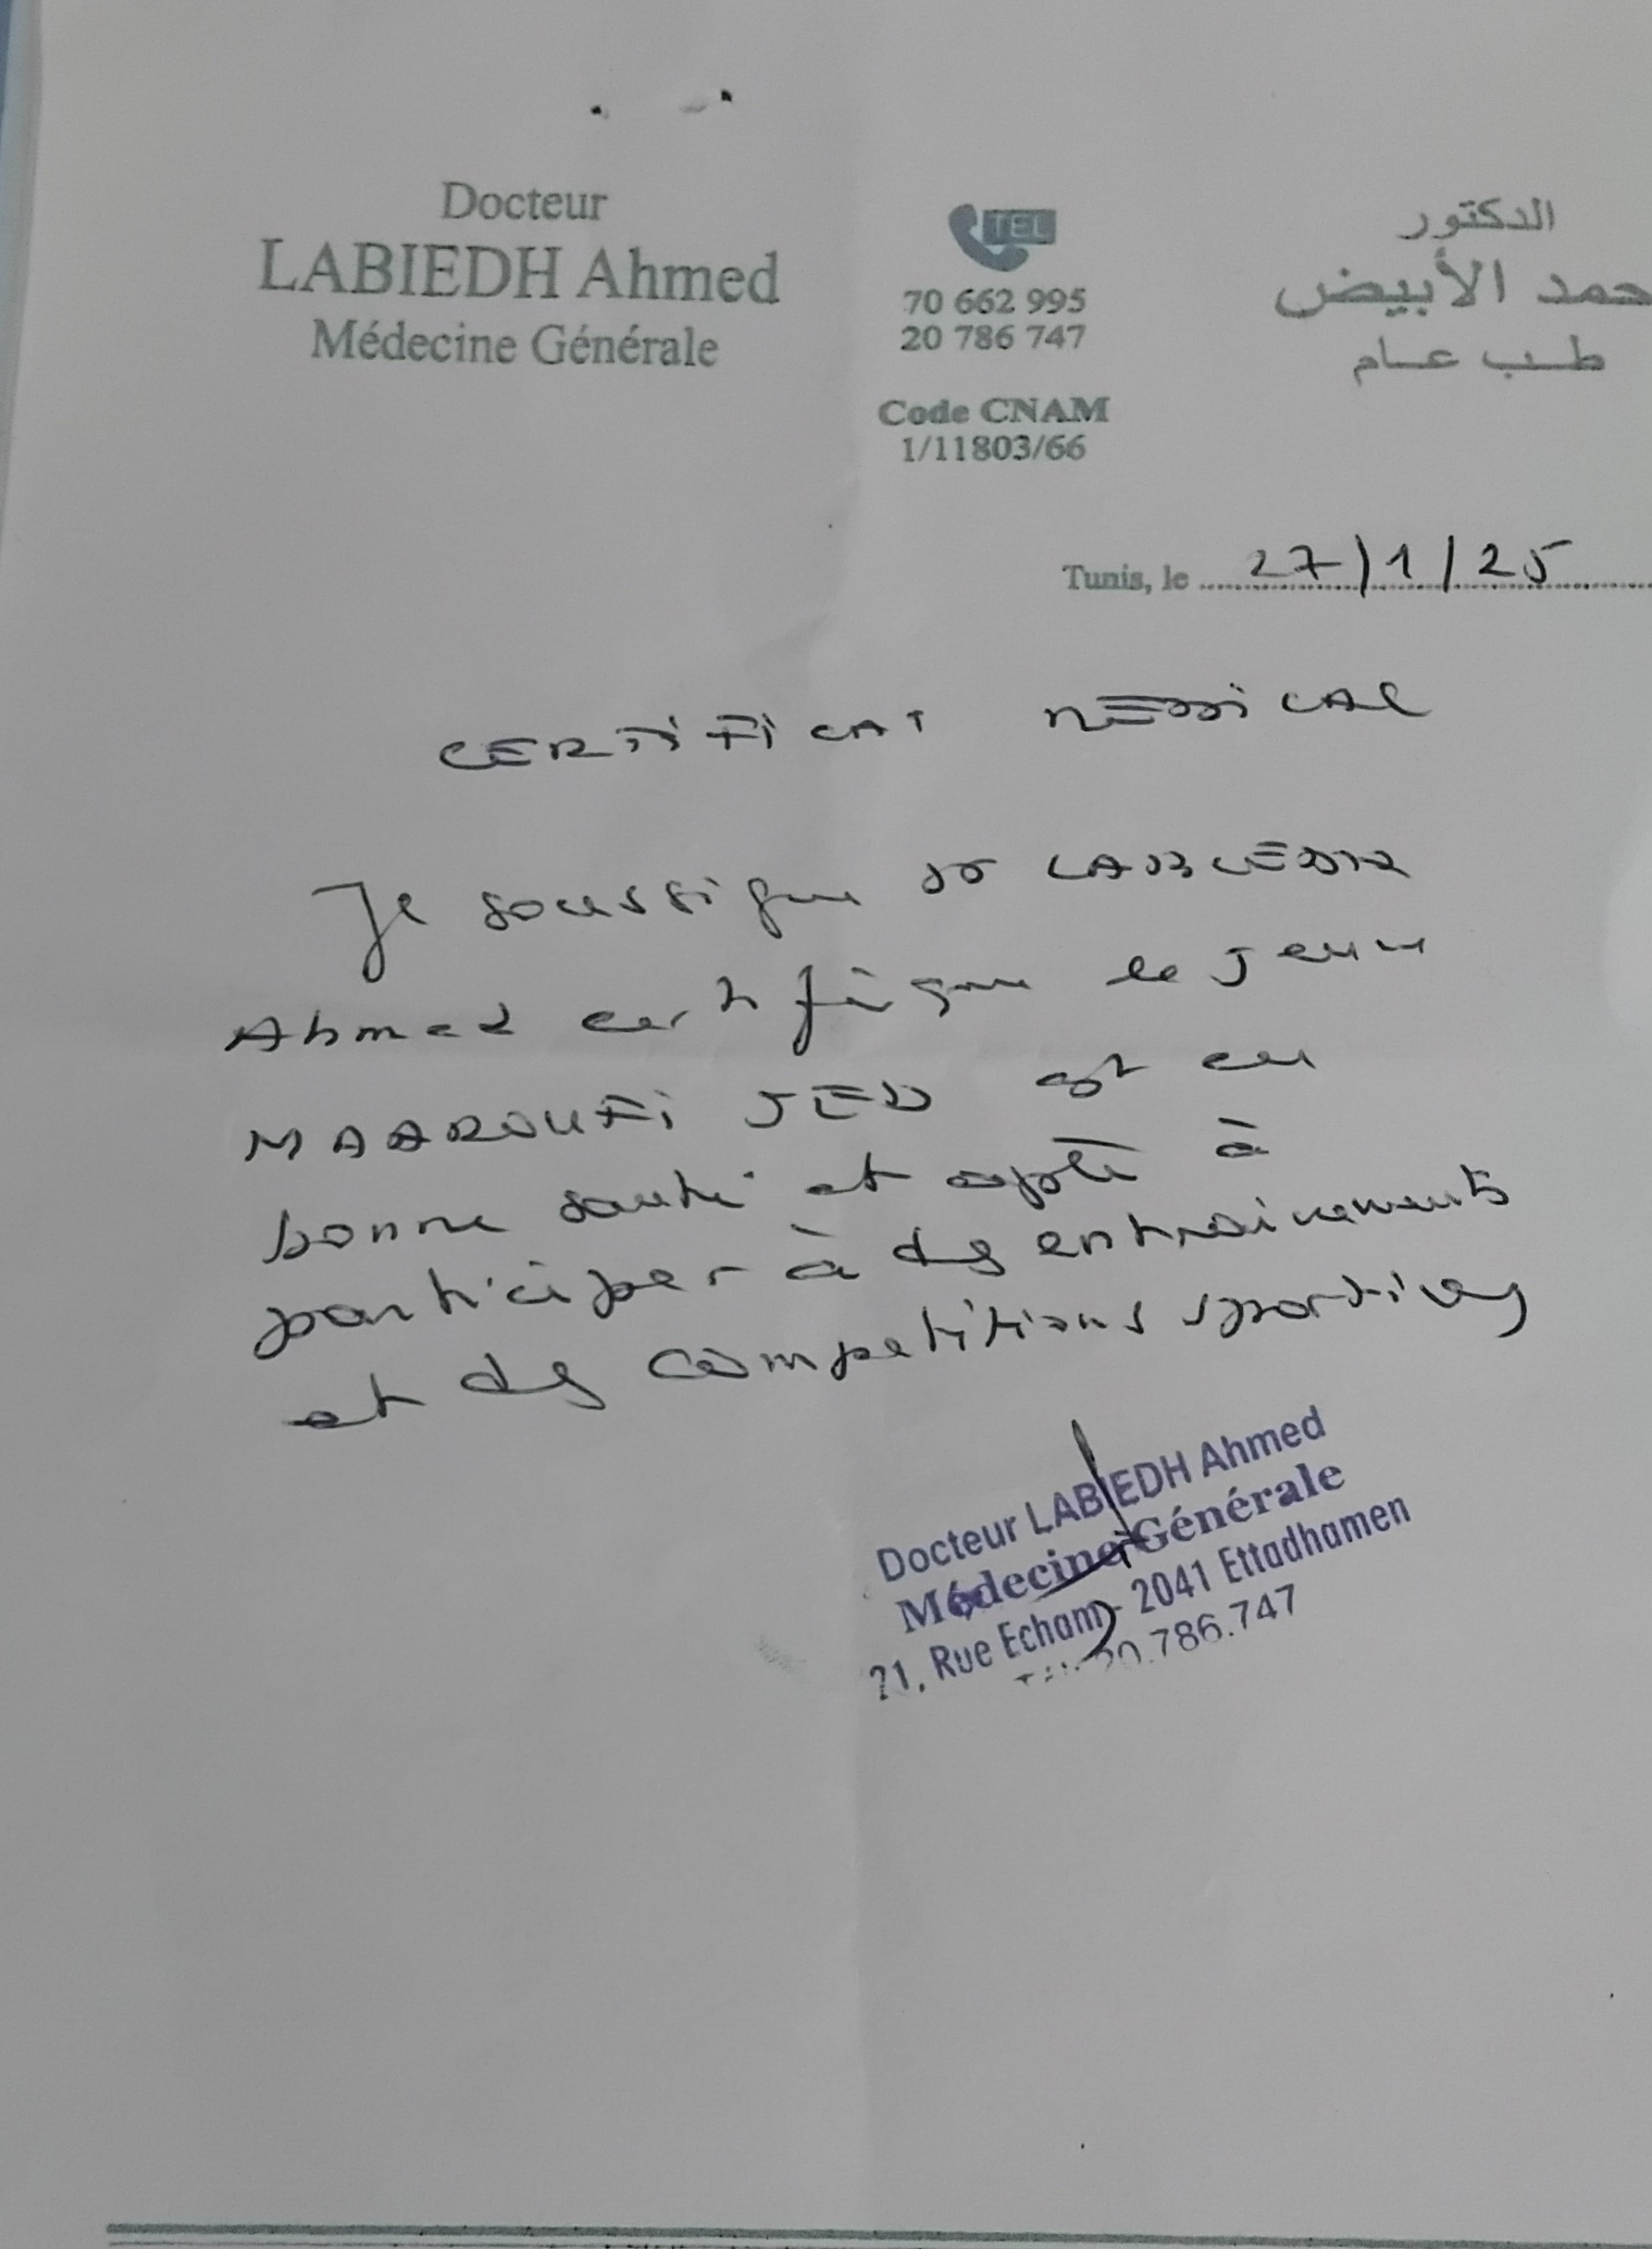 Docteur
LABIEDH Ahmed
Médecine Générale
TEL
70 662 995
20 786 747
Code CNAM
1/11803/66
الدكتور
حمد الأبيض
طب عام
Tunis, le 27/1/25
CERTIFICAT MEDICAL
Je soussigne Dr LABIEDH
Ahmed certifie que le jeune
MAAROUFI JED est en
bonne santé et apte à
participer à des entrainements
et des competitions sportives
Docteur LABIEDH Ahmed
Médecine Générale
21, Rue Echam - 2041 Ettadhamen
20.786.747